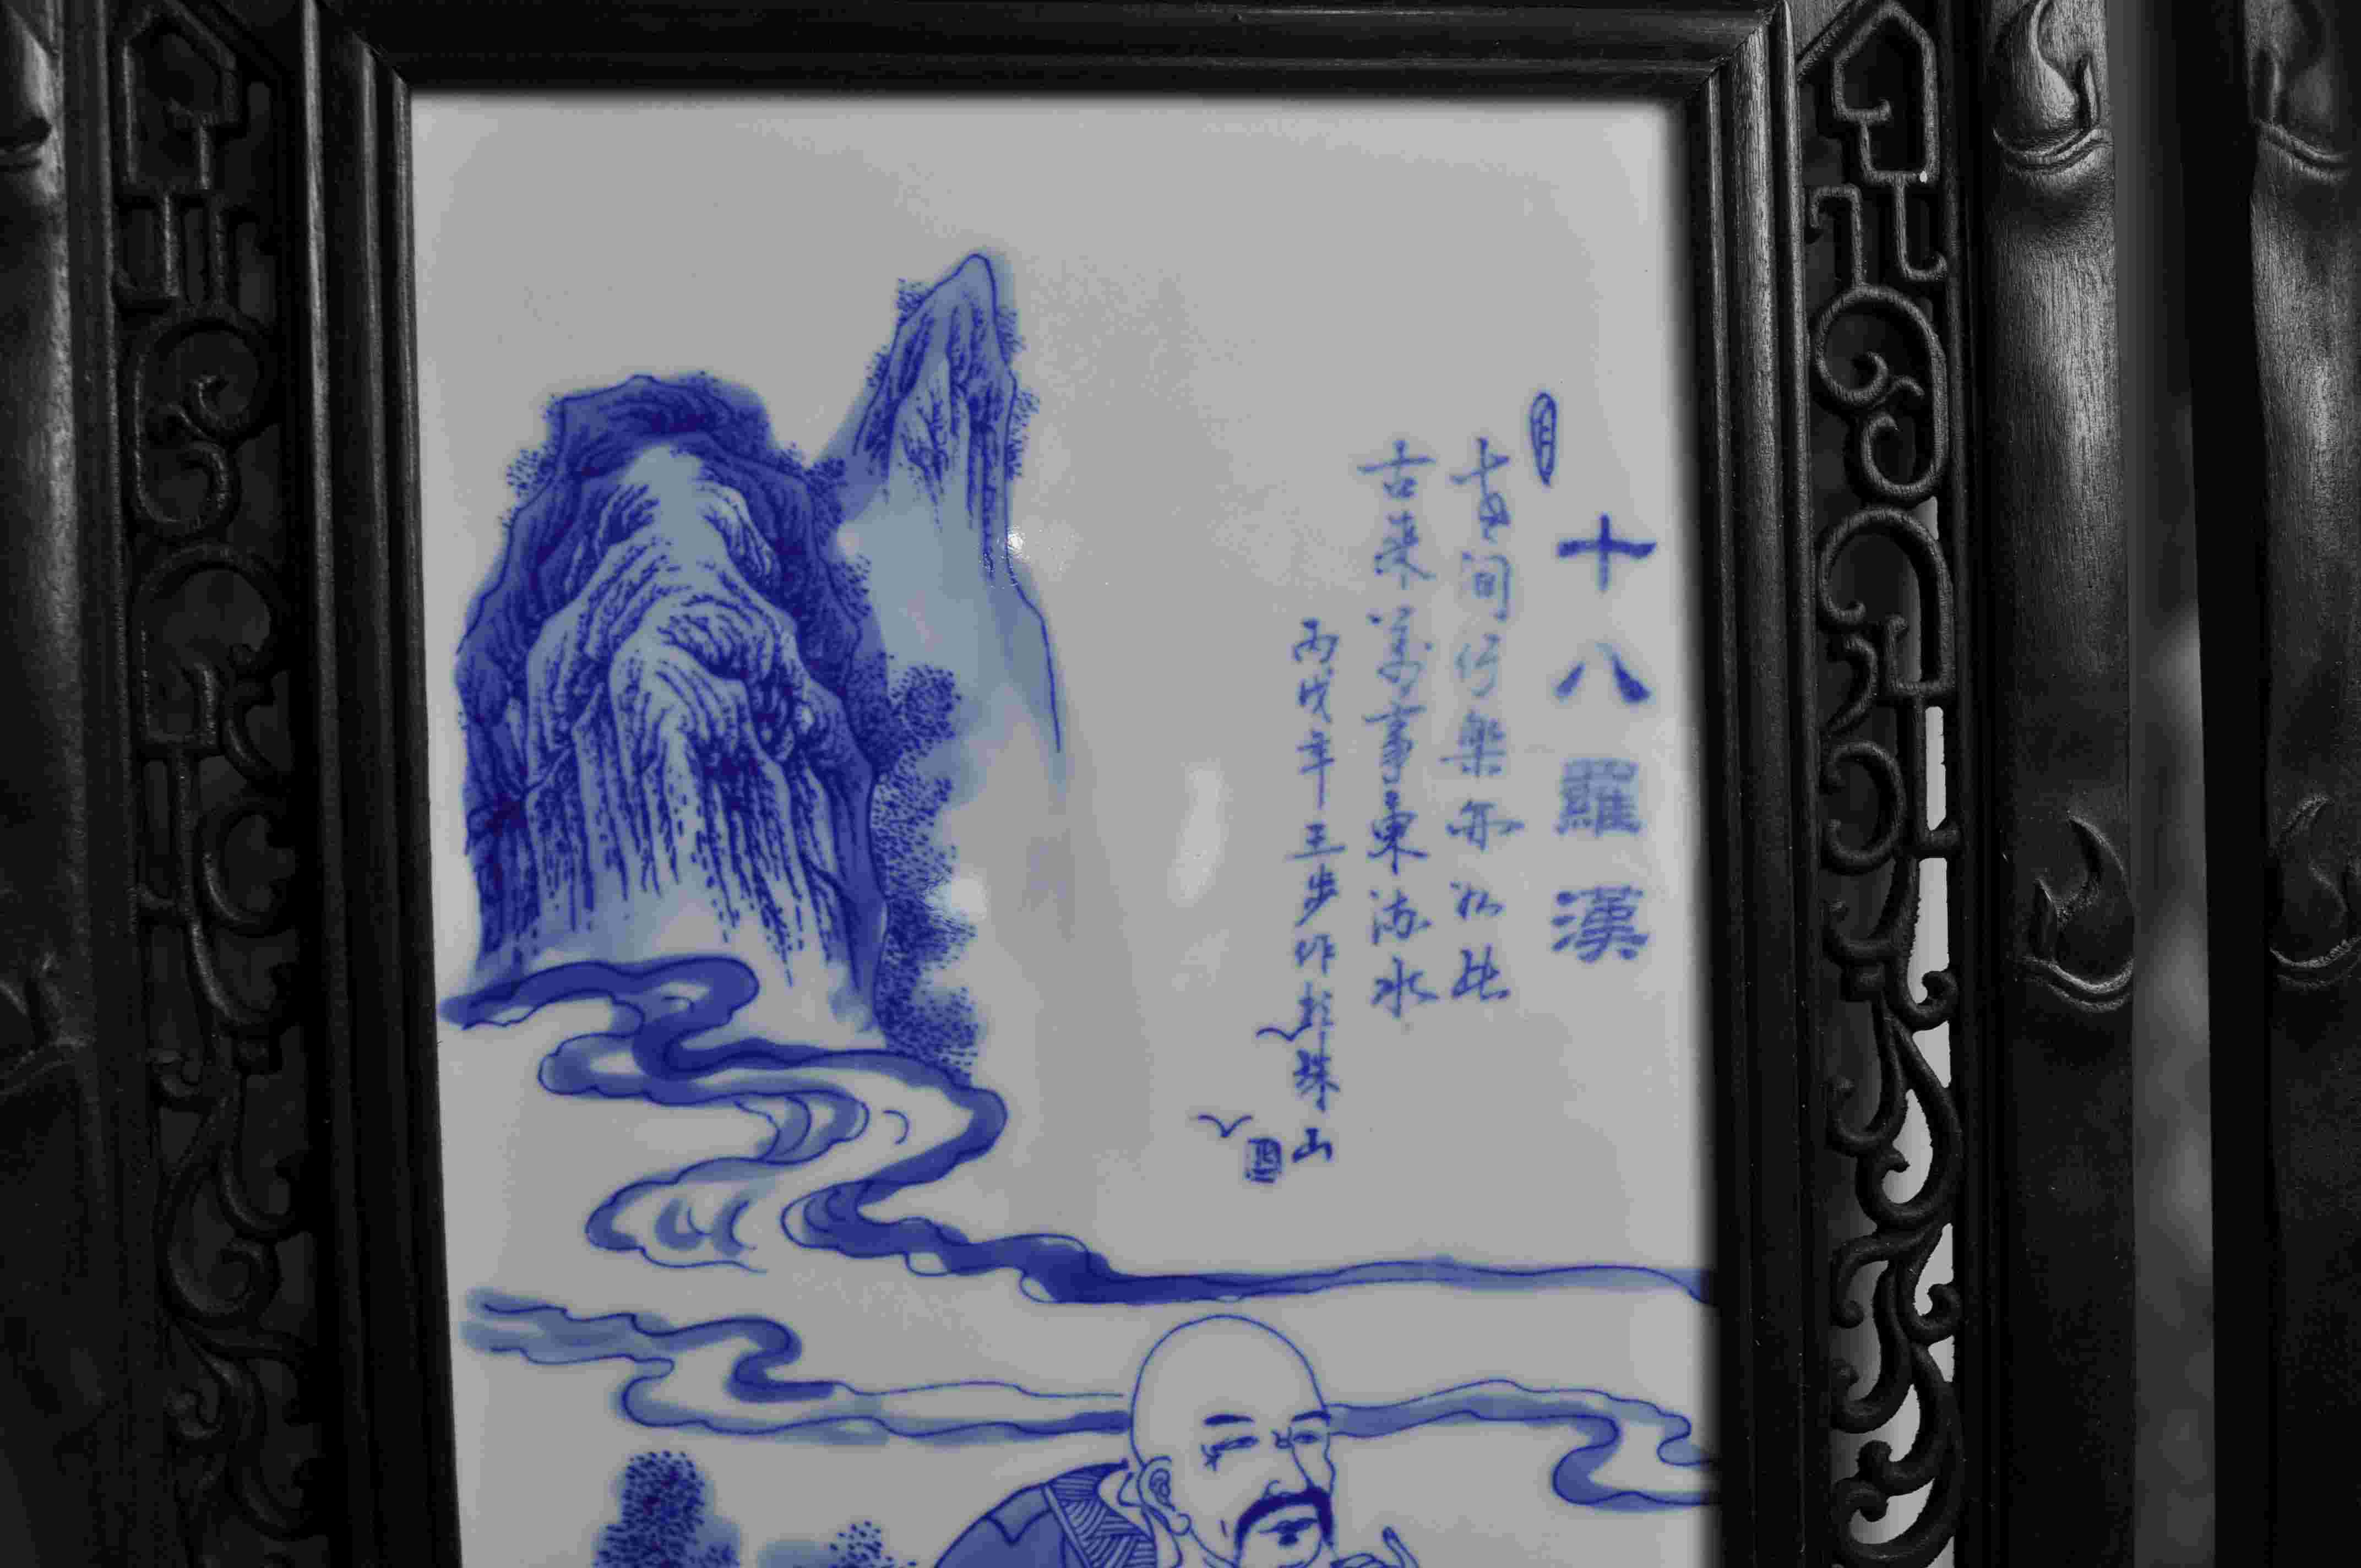 十八羅漢
世间行樂亦如此
古来萬事東流水
丙戌年王步作於珠山